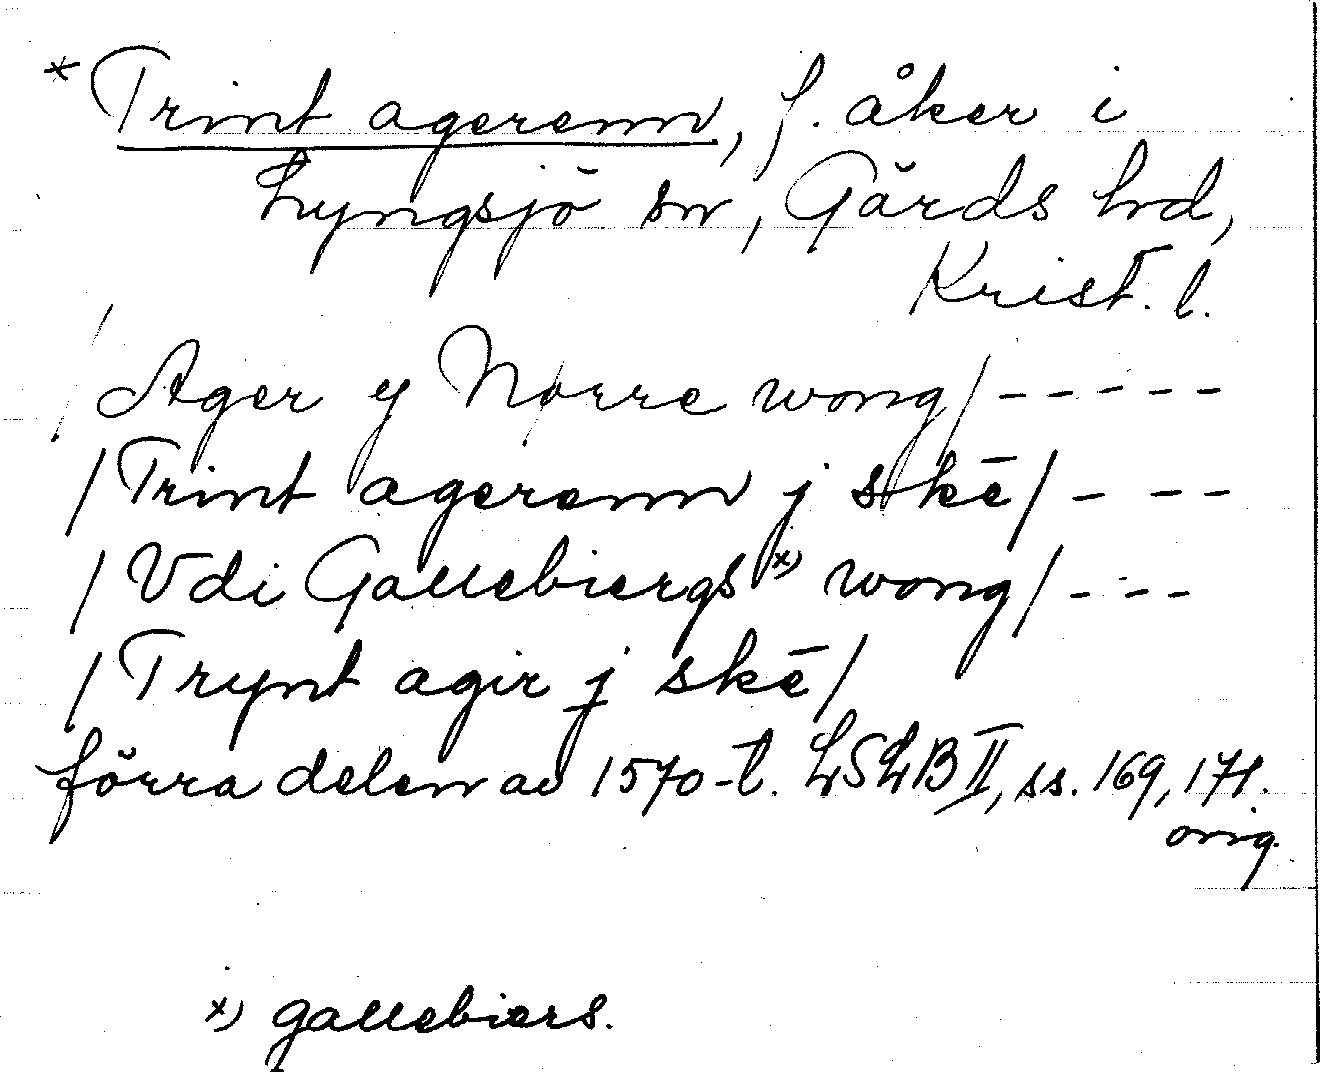 * Trint agerenn, f. åker i
Lyngsjö sn, Gärds hd,
Krist. l.
/Ager y Norre wong/-----
/Trint agerenn j skē/----
/Vdi Gallebiergs x) wong/---
/Trynt agir j skē/
förra delen av 1570-t. LSLB II, ss. 169, 171.
orig.
x) gallebiers.